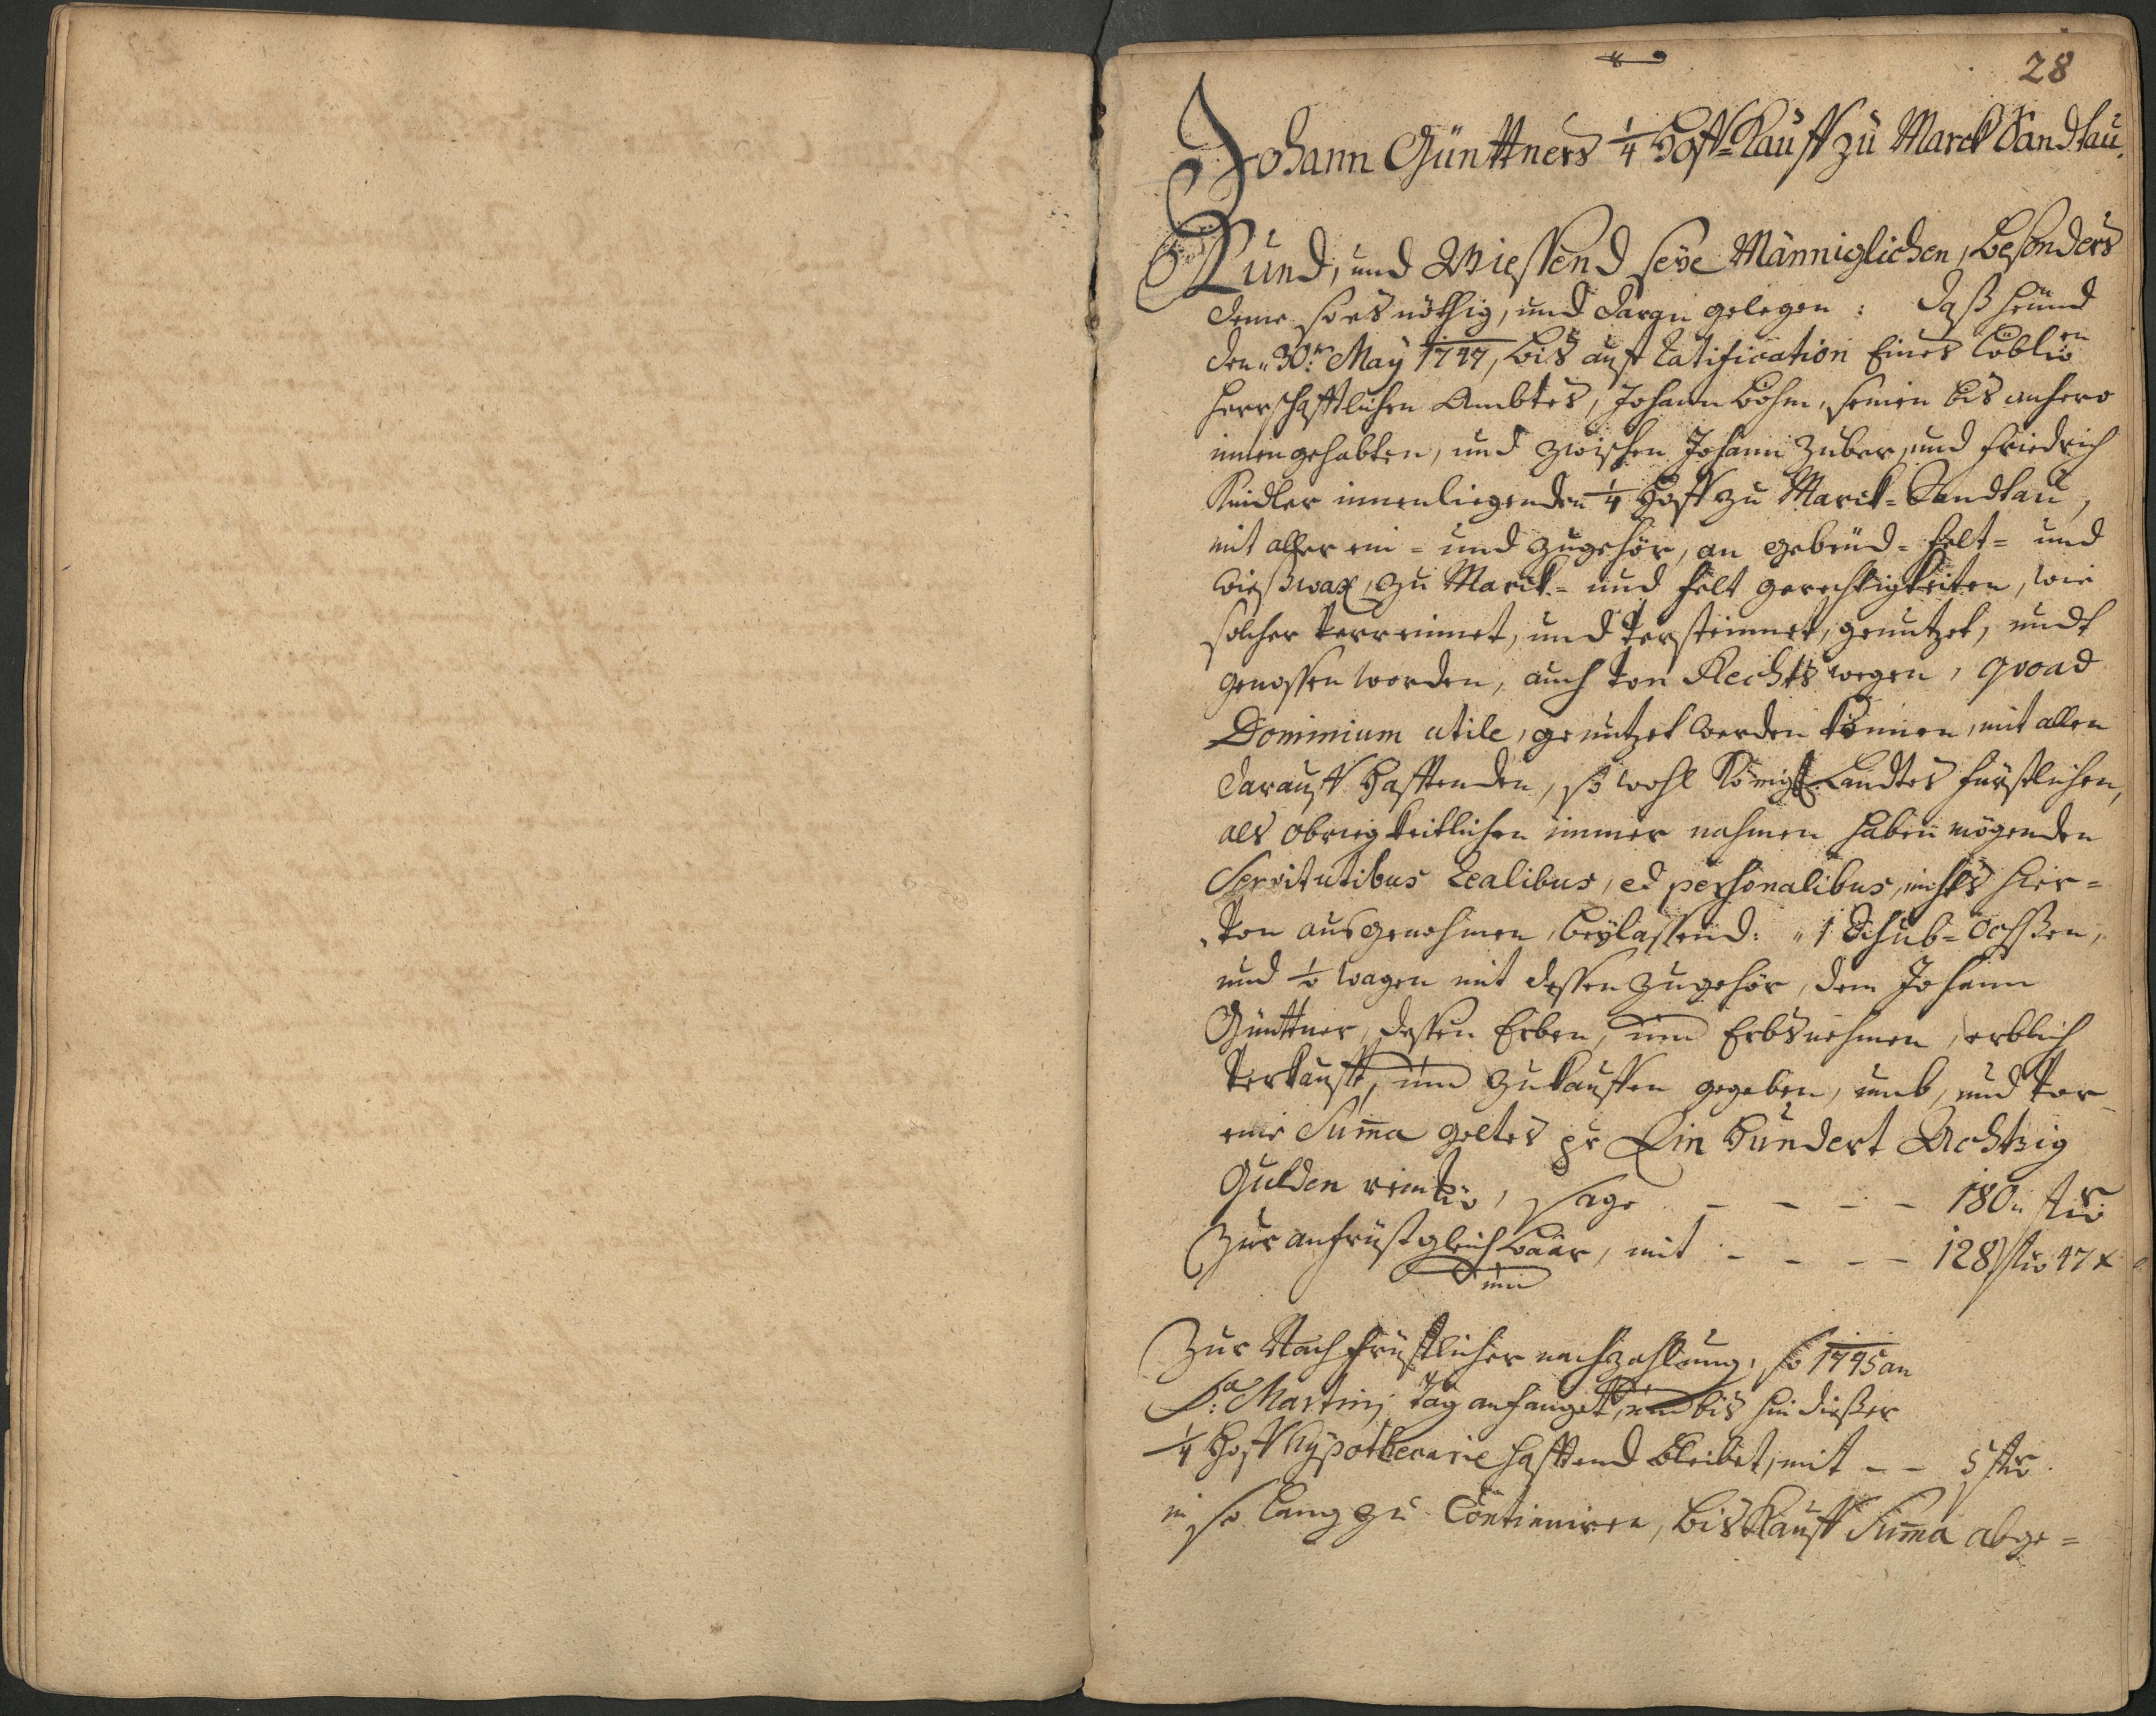 28
Johann Günttners 1/4 Hoff-Kauff zu Marck Sandtau.
Kund, und Wiessend seÿe Männiglichen, besonders
deme so es nöthig, und daran gelegen: daß heünd
den 30.ten Maÿ 1747, bis auff Ratification Eines Löbl.en
Herrschafftlichen Ambtes, Johann Böhm, seinen bis anhero
innen gehabten, und zwischen Johann Zuber, und Friedrich
Kindler innenliegenden 1/4 Hoff zu Marck-Sandtau,
mit aller ein- und zugehör, an gebeüd- Felt- und
Wießwax, zu Marck- und Felt gerechtigkeiten, wie
solcher verreinnet, und versteinnet, genutzet, undt
genossen worden, auch von Rechts wegen, quoad
Dominium utile, genutzet werden können, mit allen
darauff hafftenden, so wohl Königl. Landtes fürstlichen,
als obrigkeitlichen immer nahmen haben mögenden
Servitutibus Realibus, et personalibus, nichts hier-
von ausgenohmen, beÿlassend: 1 Schub-Ochßen,
und 1/2 Wagen mit dessen zugehör, dem Johann
Günttner, dessen Erben, und Erbsnehmen, erblich
verkaufft, und zukauffen gegeben, umb, und vor
eine Suma geltes pr Ein Hundert Achtzig
Gulden rein., sage - - - - 180. fl
Zur anfrüst gleich baar, mit - - - - 128 fl 47 x
und
Zur Nachfrüstlicher nachzahlung, so 1745 an
S: Martinj Tag anfanget, und bis hin dießer
1/4 Hoff hÿpothecarie hafftend bleibet, mit - - 5 fl
in so lang zu Continuiren, bis Kauff Suma abge-